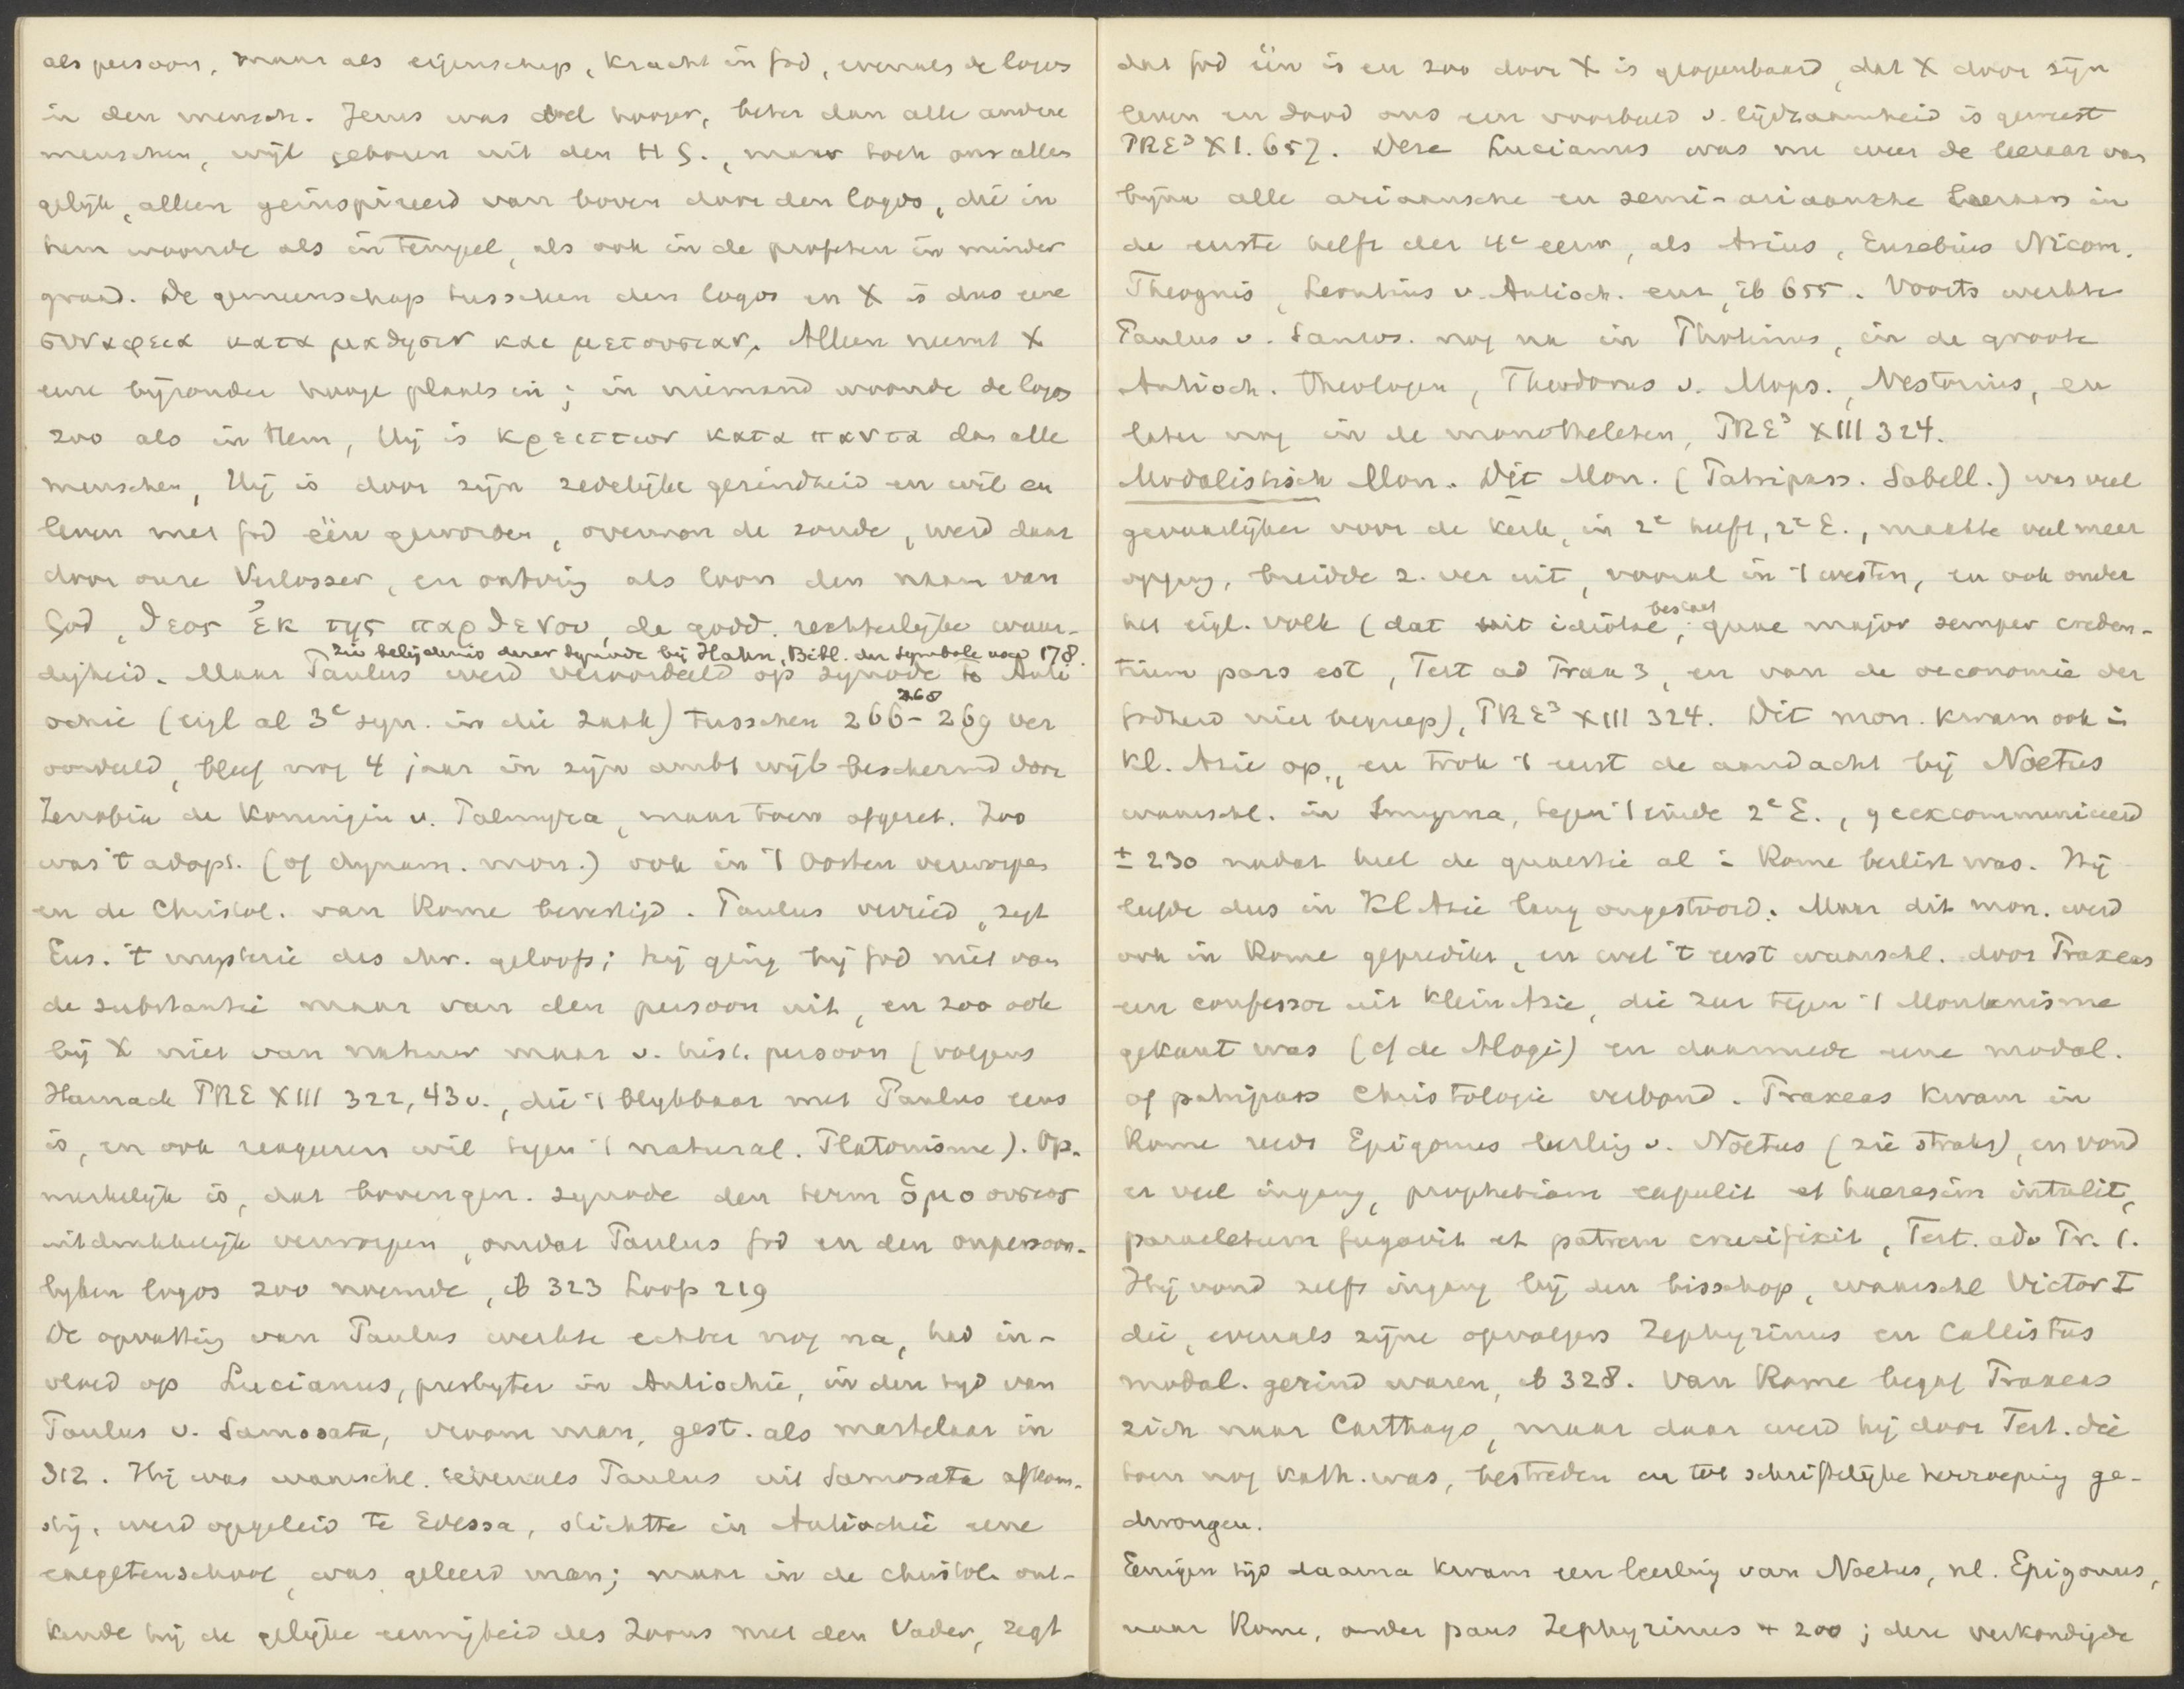 als persoon, maar als eigenschap, kracht in God, evenals de logos
in den mensch. Jezus was wel hooger, beter dan alle andere
menschen, wijl geboren uit den H G., maar toch ons alles
gelijk, alleen geïnspireerd van boven door den logos, die in
hem woonde als in tempel, als ook in de profeten in minder
graad. De gemeenschap tusschen den logos en X is dus eene
συναφεια κατα μαθησιν και μετουσιαν. Alleen neemt X
eene bijzondere hooge plaats in; in niemand woonde de logos
zoo als in Hem, Hij is κρειττων κατα παντα dan alle
menschen, Hij is door zijn zedelijke gezindheid en wil en
leven met God één geworden, overwon de zonde, werd daar
door onze Verlosser, en ontving als loon den naam van
God, θεος ἐκ της παρθενου, de godd. rechterlijke waar-
zie belijdenis dezer synode bij Hahn, Bibl. der Symbole 178.
digheid. Maar Paulus werd veroordeeld op synode to Anti
268
ochie (eigl al 3e syn. in die zaak) tusschen 266-269 ver
oordeeld, bleef nog 4 jaar in zijn ambt wijl beschermd door
Zenobia de Koningin v. Palmyra, maar toen afgezet. Zoo
was 't adopt. (of dynam. mon.) ook in 't Oosten verworpen
en de Christol. van Rome bevestigd. Paulus verried, zegt
Eus. 't mysterie des chr. geloofs; hij ging bij God niet van
de substantie maar van den persoon uit, en zoo ook
bij X niet van natuur maar v. hist. persoon (volgens
Harnack PRE XIII 322, 43v., die 't blijkbaar met Paulus eens
is, en ook reageren wil tegen 't natural. Platonisme). Op-
merkelijk is, dat bovengen. synode den term ὁμοουσιος
uitdrukkelijk verworpen, omdat Paulus God en den onpersoon-
lijken logos zoo noemde, ib 323 Loofs 219
De opvatting van Paulus werkte echter nog na, had in-
vloed op Lucianus, presbyter in Antiochië, in den tijd van
Paulus v. Samosata, vroom man, gest. als martelaar in
312. Hij was waarschl. evenals Paulus uit Samosata afkom-
stig, werd opgeleid te Edessa, stichtte in Antiochië eene
exegetenschool, was geleerd man; maar in de christol. ont-
kende hij de gelijke eeuwigheid des Zoons met den Vader, zegt
dat God één is en zoo door X is geopenbaard, dat X door zijn
leven en dood ons een voorbeeld v. lijdzaamheid is geweest
PRE³ XI. 657. Deze Lucianus was nu weer de leeraar van
bijna alle ariaansche en semi-ariaansche leeraars in
de eerste helft der 4e eeuw, als Arius, Eusebius Nicom.
Theognis, Leontius v. Antioch. enz, ib 655. Voorts werkte
Paulus v. Samos. nog na in Photinus, in de groote
Antioch. theologen, Theodorus v. Mops., Nestorius, en
later nog in de monotheleten, PRE³ XIII 324.
Modalistisch Mon. Dit Mon. (Patripass. Sabell.) was veel
gevaarlijker voor de kerk, in 2e helft, 2e E., maakte veel meer
opgang, breidde z. ver uit, vooral in 't westen, en ook onder
bestaat
het eigl. volk (dat uit idiotae, quae major semper creden-
tium pars est, Tert ad Prax 3, en van de oeconomie der
Godheid niet begreep), PRE³ XIII 324. Dit mon. kwam ook in
Kl. Azie op, en trok 't eerst de aandacht bij Noetus
waarschl. in Smyrna, tegen 't einde 2e E., geexcommuniceerd
± 230 nadat heel de quaestie al in Rome beslist was. Hij
leefde dus in Kl Azie lang ongestoord. Maar dit mon. werd
ook in Rome gepredikt, en wel 't eerst waarschl. door Praxeas
een confessor uit Klein Azie, die zeer tegen 't Montanisme
gekant was (cf de Alogi) en daarmede eene modal.
of patripass Christologie verbond. Praxeas kwam in
Rome reeds Epigonus leerling v. Noëtus (zie straks), en vond
er veel ingang, prophetiam expulit et haeresim intulit,
paracletum fugavit et patrem crucifixit, Tert. adv Pr. 1.
Hij vond zelfs ingang bij den bisschop, waarschl Victor I
die, evenals zijne opvolgers Zephyrinus en Callistus
modal. gezind waren, ib 328. Van Rome begaf Praxeas
zich naar Carthago, maar daar werd hij door Tert. die
toen nog kath. was, bestreden en tot schriftelijke herroeping ge-
drongen.
Eenigen tijd daarna kwam een leerling van Noëtus, nl. Epigonus,
naar Rome, onder paus Zephyrinus + 200; deze verkondigde